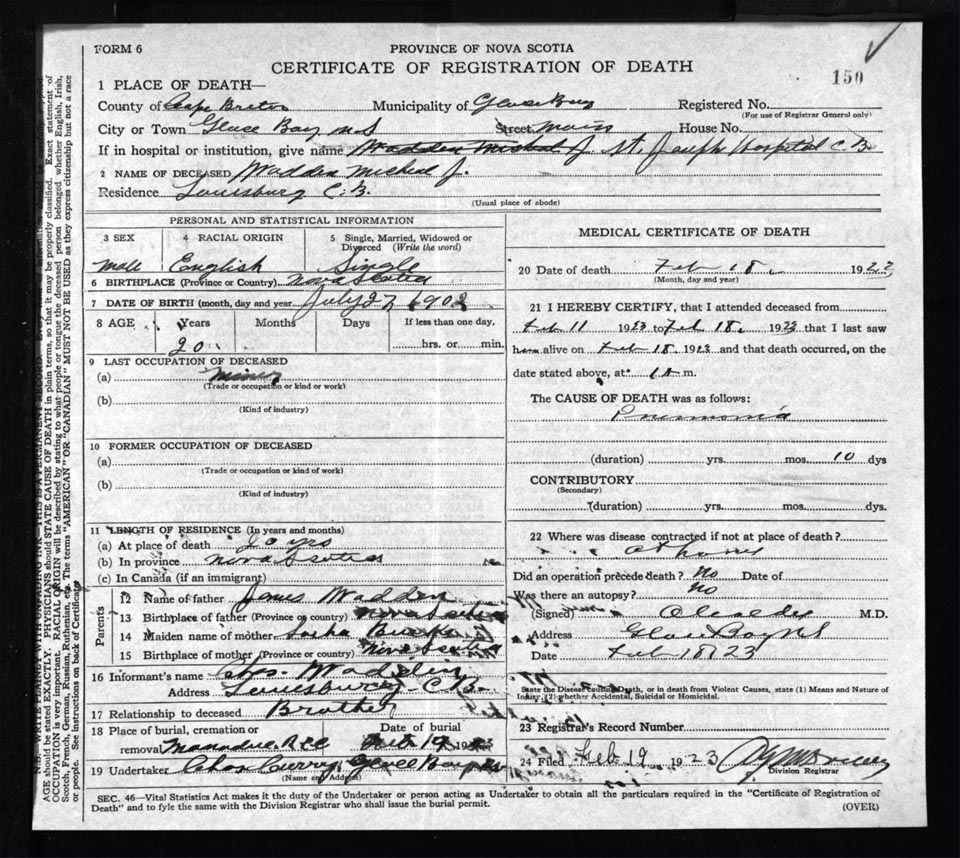 FORM 6
PROVINCE OF NOVA SCOTIA
CERTIFICATE OF REGISTRATION OF DEATH
150
1 PLACE OF DEATH—
County of Cape Breton Municipality of Glace Bay Registered No.
(For use of Registrar General only)
City or Town Glace Bay N.S Street Main House No.
If in hospital or institution, give name Wadden Micheal J. St. Joseph Hospital C.B
2 NAME OF DECEASED Wadden Micheal J.
Residence Louisburg C.B.
(Usual place of abode)
PERSONAL AND STATISTICAL INFORMATION
3 SEX
4 RACIAL ORIGIN
5 Single, Married, Widowed or Divorced (Write the word)
Male English Single
6 BIRTHPLACE (Province or Country) Nova Scotia
7 DATE OF BIRTH (month, day and year) July 27 1902
8 AGE Years Months Days If less than one day,
20 hrs. or min.
9 LAST OCCUPATION OF DECEASED
(a) Miner
(Trade or occupation or kind or work)
(b)
(Kind of industry)
10 FORMER OCCUPATION OF DECEASED
(a)
(Trade or occupation or kind of work)
(b)
(Kind of industry)
11 LENGTH OF RESIDENCE (In years and months)
(a) At place of death 20 yrs
(b) In province Nova Scotia
(c) In Canada (if an immigrant)
Parents
12 Name of father James Wadden
13 Birthplace of father (Province or country) Nova Scotia
14 Maiden name of mother
15 Birthplace of mother (Province or country) Nova Scotia
16 Informant's name Wadden
Address Louisburg C.B.
17 Relationship to deceased Brother
18 Place of burial, cremation or removal Date of burial
Feb 19 19
19 Undertaker Chas Curry Glace Bay
(Name and Address)
MEDICAL CERTIFICATE OF DEATH
20 Date of death Feb 18 1923
(Month, day and year)
21 I HEREBY CERTIFY, that I attended deceased from
Feb 11 1923 to Feb 18 1923 that I last saw
h alive on Feb 18 1923 and that death occurred, on the
date stated above, at m.
The CAUSE OF DEATH was as follows:
Pneumonia
(duration) yrs. mos. 10 dys
CONTRIBUTORY
(Secondary)
(duration) yrs. mos. dys.
22 Where was disease contracted if not at place of death?
at home
Did an operation precede death? No Date of
Was there an autopsy? No
(Signed) M.D.
Address Glace Bay NS
Date Feb 18 23
State the Disease causing Death, or in death from Violent Causes, state (1) Means and Nature of
Injury, (2) whether Accidental, Suicidal or Homicidal.
23 Registrar's Record Number
24 Filed Feb 19 1923
Division Registrar
SEC. 46—Vital Statistics Act makes it the duty of the Undertaker or person acting as Undertaker to obtain all the particulars required in the "Certificate of Registration of
Death" and to fyle the same with the Division Registrar who shall issue the burial permit.
(OVER)
N.B.—WRITE PLAINLY WITH UNFADING INK—THIS IS A PERMANENT RECORD. Every item of information should be carefully supplied.
AGE should be stated EXACTLY. PHYSICIANS should STATE CAUSE OF DEATH in plain terms, so that it may be properly classified. Exact statement of
OCCUPATION is very important. RACIAL ORIGIN will be described by stating to what people or tongue the deceased person belonged whether English, Irish,
Scotch, French, German, Russian, Ruthenian, etc. The terms "AMERICAN" OR "CANADIAN" MUST NOT BE USED as they express citizenship but not a race
or people. See instructions on back of Certificate